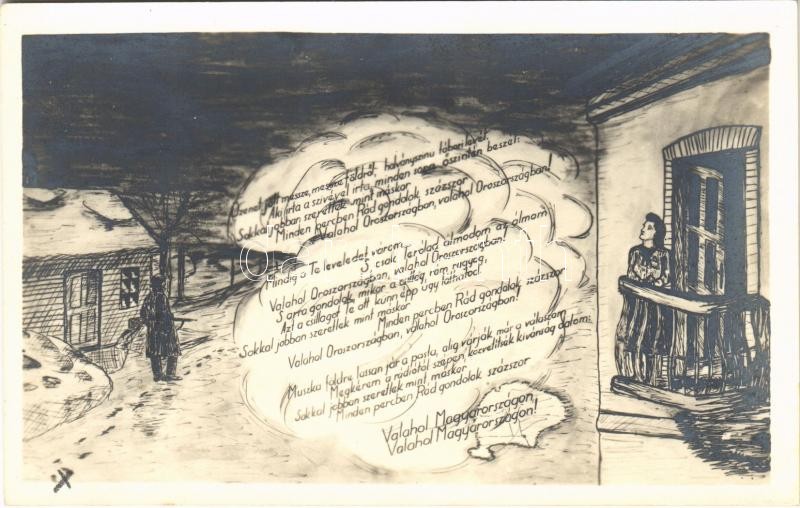 Üzenet jött messze, messze földről, halványszínű tábori levél.
Aki írta a szívével írta, minden sora őszintén beszél:
Sokkal jobban szeretlek mint máskor
Minden percben Rád gondolok százszor
Valahol Oroszországban, valahol Oroszországban!
Mindig a Te leveledet várom
S csak Terólad álmodom az álmom
Valahol Oroszországban, valahol Oroszországban!
S arra gondolok, mikor a csillag rám ragyog,
Azt a csillagot Te ott künn épp úgy láthatod!
Sokkal jobban szeretlek mint máskor
Minden percben Rád gondolok százszor
Valahol Oroszországban, valahol Oroszországban!
Muszka földre lassan jár a posta, alig várják már a válaszom
Megkérem a rádiótól szépen, közvetítsék kívánság dalom:
Sokkal jobban szeretlek mint, máskor
Minden percben Rád gondolok százszor
Valahol Magyarországon,
Valahol Magyarországon!